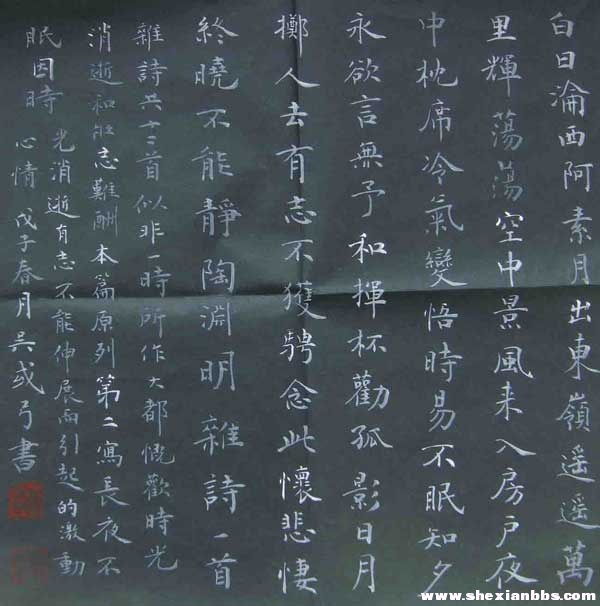 白日淪西阿素月出東嶺遥遥萬
里輝蕩蕩空中景風来入房户夜
中枕席冷氣變悟時易不眠知夕
永欲言無予和揮杯勸孤影日月
擲人去有志不獲騁念此懷悲悽
終曉不能靜陶淵明雜詩一首
雜詩共十二首似非一時所作大都慨歎時光
消逝和壯志難酬本篇原列第二寫長夜不
眠因時光消逝有志不能伸展而引起的激動
心情戊子春月吳或弓書
www.shexianbbs.com